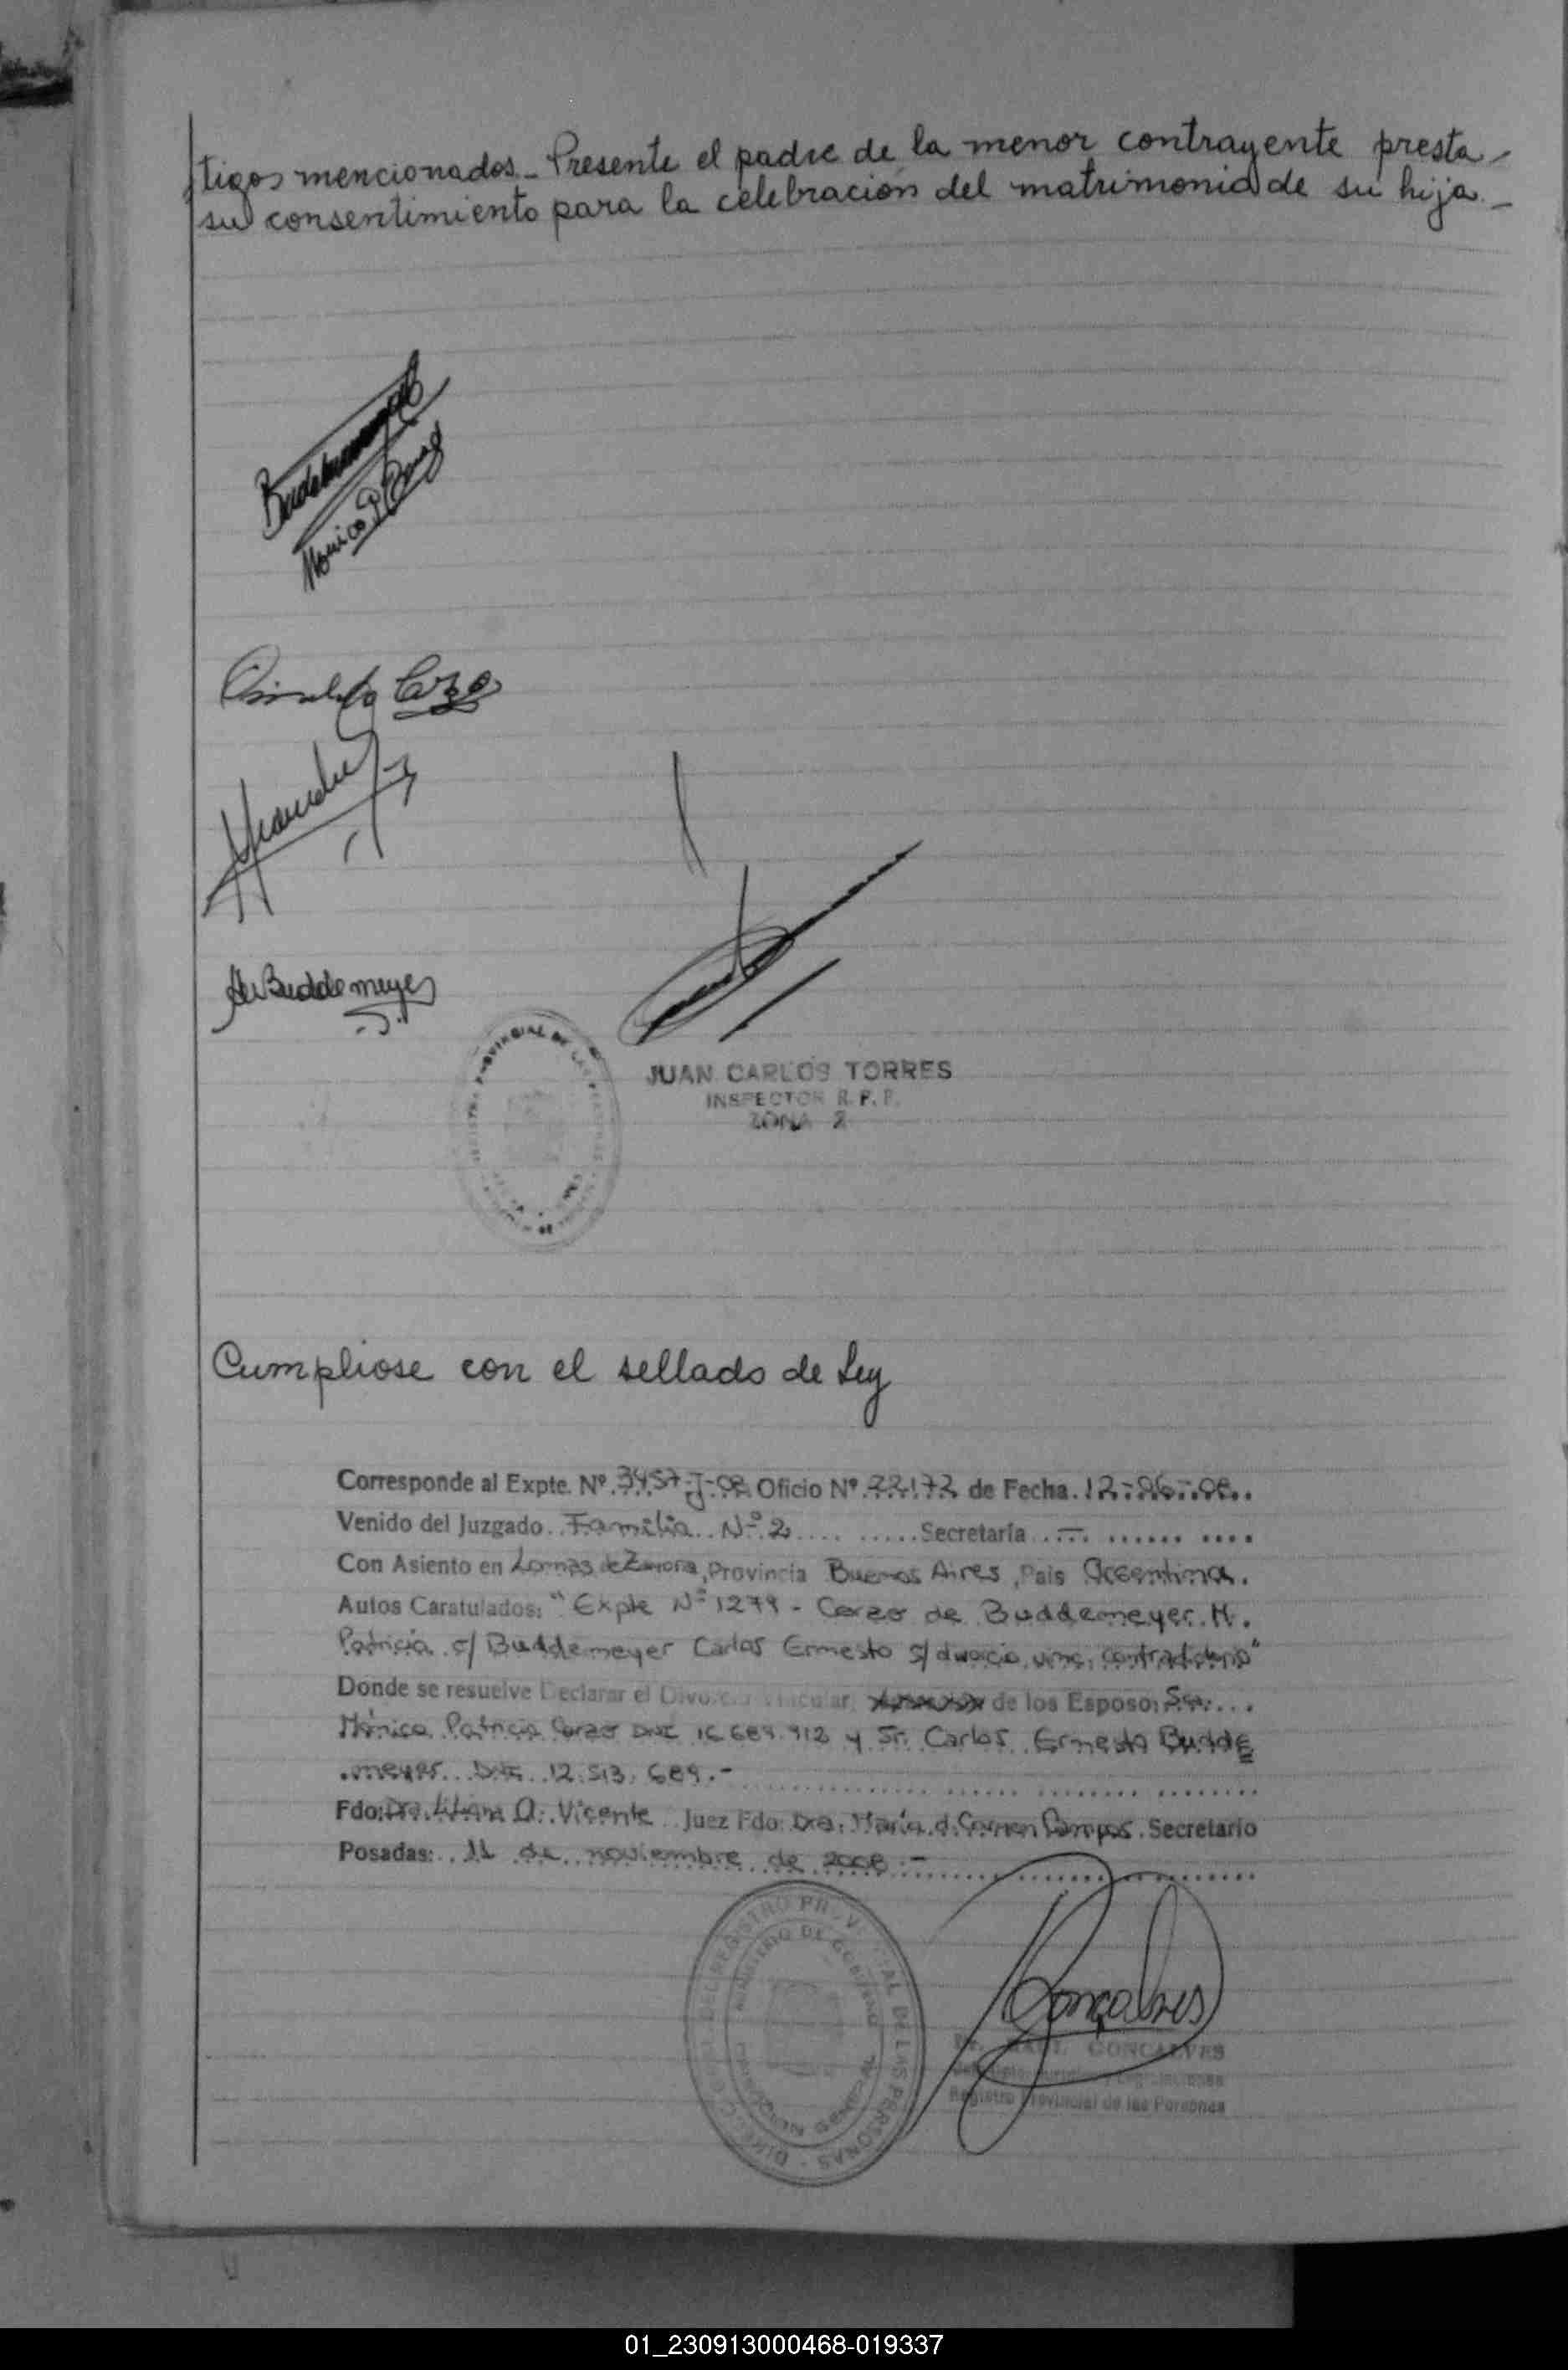 tigos mencionados_ Presente el padre de la menor contrayente presta
su consentimiento para la celebración del matrimonio de su hija._
Buddemeyer
Monica P Corzo
Osvaldo Corzo
Buddemeyer
REGISTRO PROVINCIAL DE LAS PERSONAS
JUAN CARLOS TORRES
INSPECTOR R. P. P.
ZONA 2
Cumpliose con el sellado de Ley
Corresponde al Expte. Nº 3457-J-08 Oficio Nº 22172 de Fecha 12-06-08
Venido del Juzgado Familia Nº 2 Secretaría —
Con Asiento en Lomas de Zamora, Provincia Buenos Aires, País Argentina.
Autos Caratulados: "Expte Nº 1279 - Corzo de Buddemeyer M.
Patricia c/ Buddemeyer Carlos Ernesto s/ divorcio vinc. contradictorio"
Donde se resuelve Declarar el Divorcio Vincular de los Esposo: Sra.
Mónica Patricia Corzo DNI 16.689.912 y Sr. Carlos Ernesto Budde
meyer DNI 12.513.689.-
Fdo: Dra. Liliana A. Vicente Juez Fdo: Dra. María d. Carmen Campos Secretario
Posadas: 11 de noviembre de 2008.-
REGISTRO PROVINCIAL DE LAS PERSONAS
MINISTERIO DE GOBIERNO
Goncalves
GONCALVES
Registro Provincial de las Personas
01_230913000468-019337